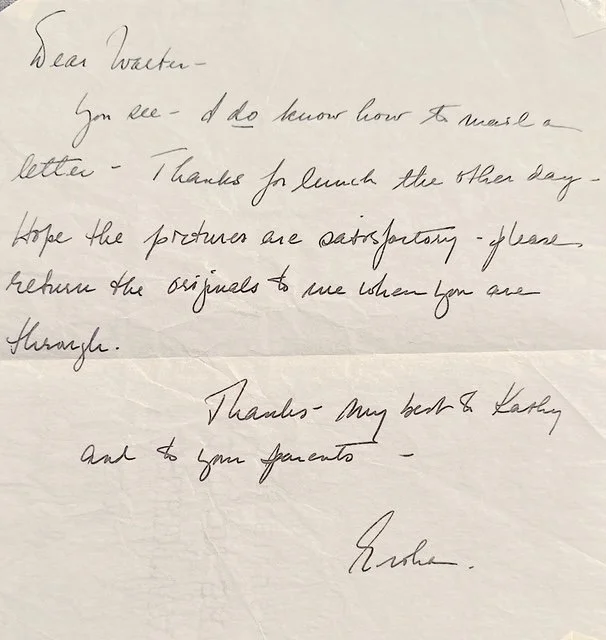 Dear Walter-
You see - I do know how to mail a
letter - Thanks for lunch the other day -
Hope the pictures are satisfactory - please
return the originals to me when you are
through.
Thanks - My best to Kathy
and to your parents -